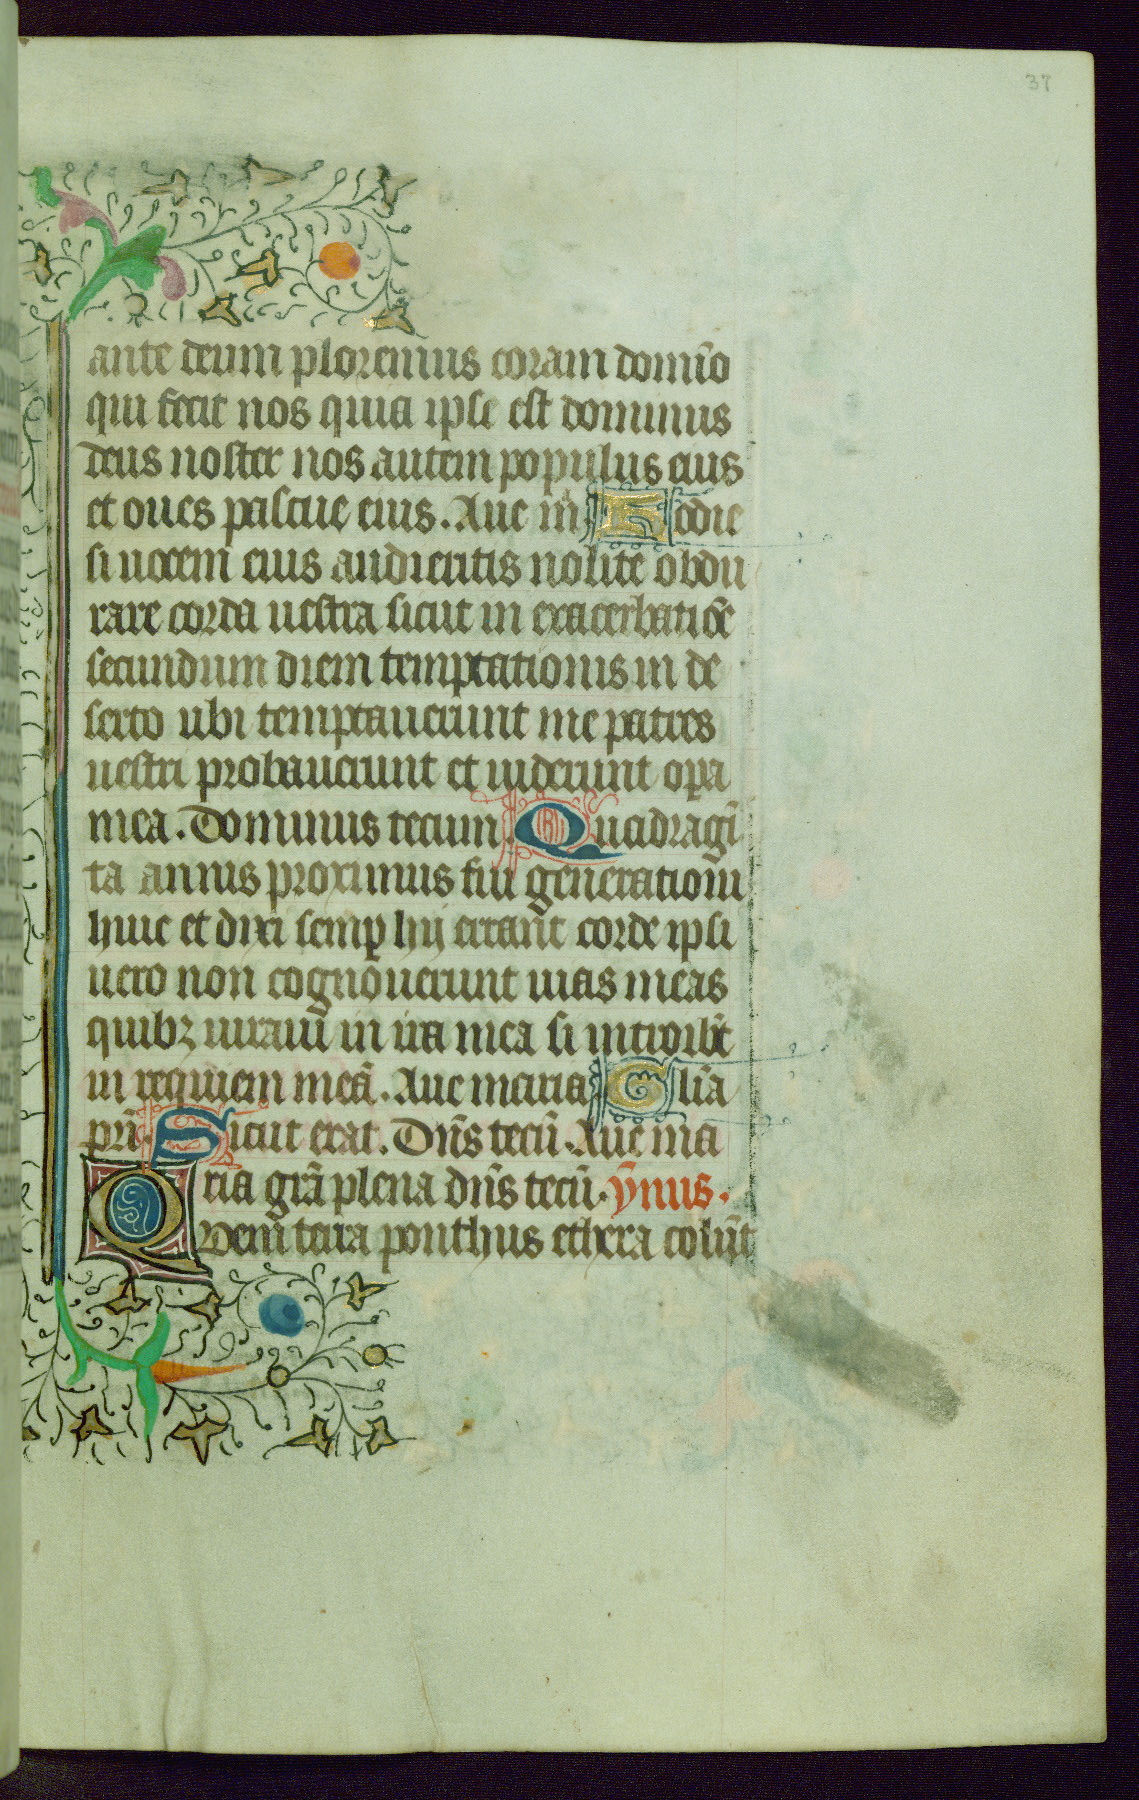 37
ante deum ploremus coram domīo
qui fecit nos quia ipse est dominus
deus noster nos autem populus eius
et oues pascue eius. Aue m̄. Hodie
si uocem eius audieritis nolite obdu
rare corda uestra sicut in exacerbatiōe
secundum diem temptationis in de
serto ubi temptauerunt me patres
uestri probauerunt et uiderunt oꝑa
mea. Dominus tecum. Quadragī
ta annis proximus fui generationi
huic et dixi semꝑ hij errant corde ipsi
uero non cognouerunt uias meas
quibꝫ iuraui in ira mea si introibūt
in requiem meā. Aue maria Glīa
pr̄i. Sicut erat. Dn̄s tecū. Aue ma
ria grā plena dn̄s tecū. ym̄us.
Quem terra ponthus ethera colūt